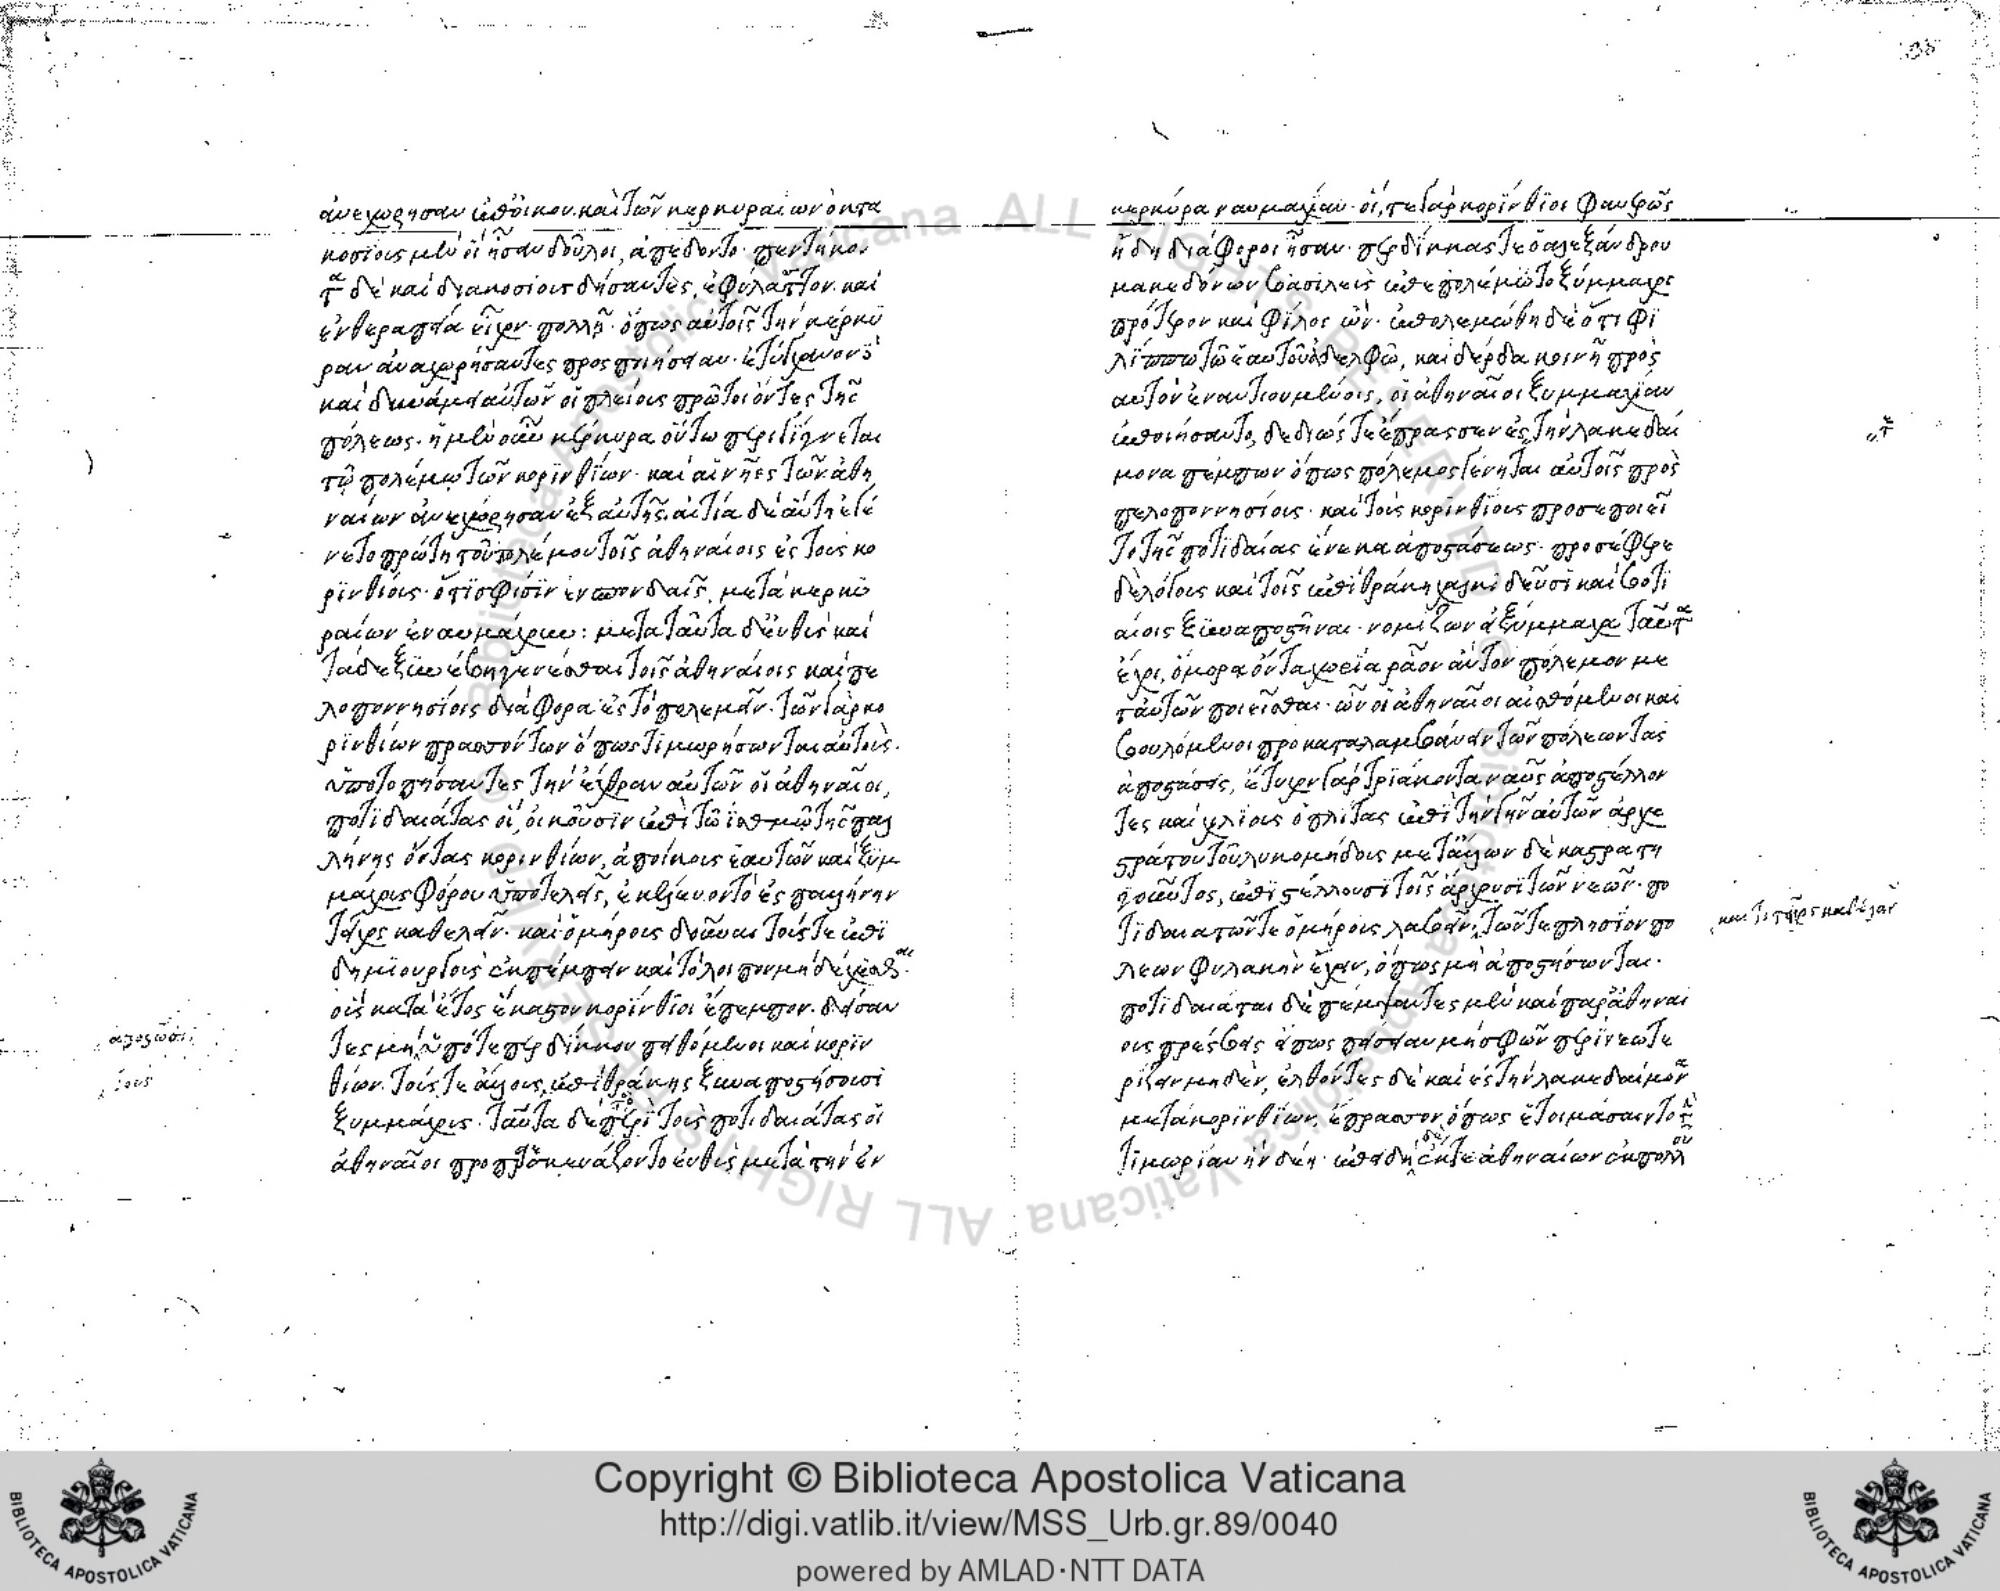 ἀνεχώρησαν ἐπ' οἴκου. καὶ τῶν κερκυραίων ὀκτα
κοσίους μὲν οἳ ἦσαν δοῦλοι, ἀπέδοντο· πεντήκον
τα δὲ καὶ διακοσίους δήσαντες, ἐφύλαττον. καὶ
ἐν θεραπεία εἶχον πολλῆ· ὅπως αὐτοῖς τὴν κέρκυ
ραν ἀναχωρήσαντες προσποιήσειαν· ἐτύγχανον
καὶ δυνάμει αὐτῶν οἱ πλείους πρῶτοι ὄντες τῆς
πόλεως. ἡ μὲν οὖν κέρκυρα οὕτω περιγίγνεται
τῶ πολέμω τῶν κορινθίων· καὶ αἱ νῆες τῶν ἀθη
ναίων ἀνεχώρησαν ἐξ αὐτῆς. αἰτία δὲ αὕτη ἐγέ
νετο πρώτη τοῦ πολέμου τοῖς ἀθηναίοις ἐς τοὺς κο
ρινθίους· ὅτι σφίσιν ἐν σπονδαῖς, μετὰ κερκυ
ραίων ἐναυμάχουν: μετὰ ταῦτα δ' εὐθὺς καὶ
τάδε ξυνέβη γενέσθαι τοῖς ἀθηναίοις καὶ πε
λοποννησίοις διάφορα ἐς τὸ πολεμεῖν. τῶν γὰρ κο
ρινθίων πρασσόντων ὅπως τιμωρήσωνται αὐτοὺς.
ὑποτοπήσαντες τὴν ἔχθραν αὐτῶν οἱ ἀθηναῖοι,
ποτιδαιάτας οἳ οἰκοῦσιν ἐπὶ τῶ ἰσθμῶ τῆς παλ
λήνης ὄντας κορινθίων, ἀποίκους ἑαυτῶν καὶ ξυμ
μάχους φόρου ὑποτελεῖς, ἐκέλευον τὸ ἐς παλλήνην
τεῖχος καθελεῖν. καὶ ὁμήρους δοῦναι τούς τε ἐπι
δημιουργοὺς ἐκπέμπειν καὶ τὸ λοιπὸν μὴ δέχεσθαι.
οὓς κατὰ ἔτος ἕκαστον κορίνθιοι ἔπεμπον. δείσαν
τες μὴ ὑπό τε περδίκκου πειθόμενοι καὶ κοριν
θίων. τούς τε ἄλλους, ἐπὶ θράκης ξυναποστήσουσι
ξυμμάχους. ταῦτα δὲ περὶ τοὺς ποτιδαιάτας οἱ
ἀθηναῖοι προπαρεσκευάζοντο εὐθὺς μετὰ τὴν ἐν
ἀποστῶσι
κερκύρα ναυμαχίαν· οἵ, τε γὰρ κορίνθιοι φανερῶς
ἤδη διάφοροι ἦσαν· περδίκκας τε ὁ ἀλεξάνδρου
μακεδόνων βασιλεὺς ἐπεπολέμωτο ξύμμαχος
πρότερον καὶ φίλος ὢν· ἐπολεμώθη δὲ ὅτι φι
λίππω τῶ ἑαυτοῦ ἀδελφῶ, καὶ δέρδα κοινῆ πρὸς
αὐτὸν ἐναντιουμένοις, οἱ ἀθηναῖοι ξυμμαχίαν
ἐποιήσαντο, δεδιώς τε ἔπρασσεν ἐς τὴν λακεδαί
μονα πέμπων ὅπως πόλεμος γένηται αὐτοῖς πρὸς
πελοποννησίους· καὶ τοὺς κορινθίους προσεποιεῖ
το τῆς ποτιδαίας ἕνεκα ἀποστάσεως· προσέφερε
δὲ λόγους καὶ τοῖς ἐπὶ θράκης χαλκιδεῦσι καὶ βοττι
αίοις ξυναποστῆναι· νομίζων εἰ ξύμμαχα ταῦτα
ἔχοι, ὅμορα ὄντα χωρία ῥᾷον ἂν τὸν πόλεμον με
τ' αὐτῶν ποιεῖσθαι· ὧν οἱ ἀθηναῖοι αἰσθόμενοι καὶ
βουλόμενοι προκαταλαμβάνειν τῶν πόλεων τὰς
ἀποστάσεις, ἔτυχον γὰρ τριάκοντα ναῦς ἀποστέλλον
τες καὶ χιλίους ὁπλίτας ἐπὶ τὴν γῆν αὐτῶν ἀρχε
στράτου τοῦ λυκομήδους μετ' ἄλλων δέκα στρατη
γοῦντος, ἐπιστέλλουσι τοῖς ἄρχουσι τῶν νεῶν· πο
τιδαιατῶν τε ὁμήρους λαβεῖν, τῶν τε πλησίον πό
λεων φυλακὴν ἔχειν, ὅπως μὴ ἀποστήσωνται.
ποτιδαιάται δὲ πέμψαντες μὲν καὶ παρ' ἀθηναί
ους πρέσβεις εἴ πως πείσειαν μὴ σφῶν πέρι νεωτε
ρίζειν μηδὲν, ἐλθόντες δὲ καὶ ἐς τὴν λακεδαίμονα
μετὰ κορινθίων, ἔπρασσον ὅπως ἑτοιμάσαιντο
τιμωρίαν ἢν δέη· ἐπειδὴ δὲ ἔκ τε ἀθηναίων ἐκ πολλοῦ
καὶ τὸ τεῖχος καθελεῖν
Copyright © Biblioteca Apostolica Vaticana
http://digi.vatlib.it/view/MSS_Urb.gr.89/0040
powered by AMLAD·NTT DATA
BIBLIOTECA APOSTOLICA VATICANA
BIBLIOTECA APOSTOLICA VATICANA